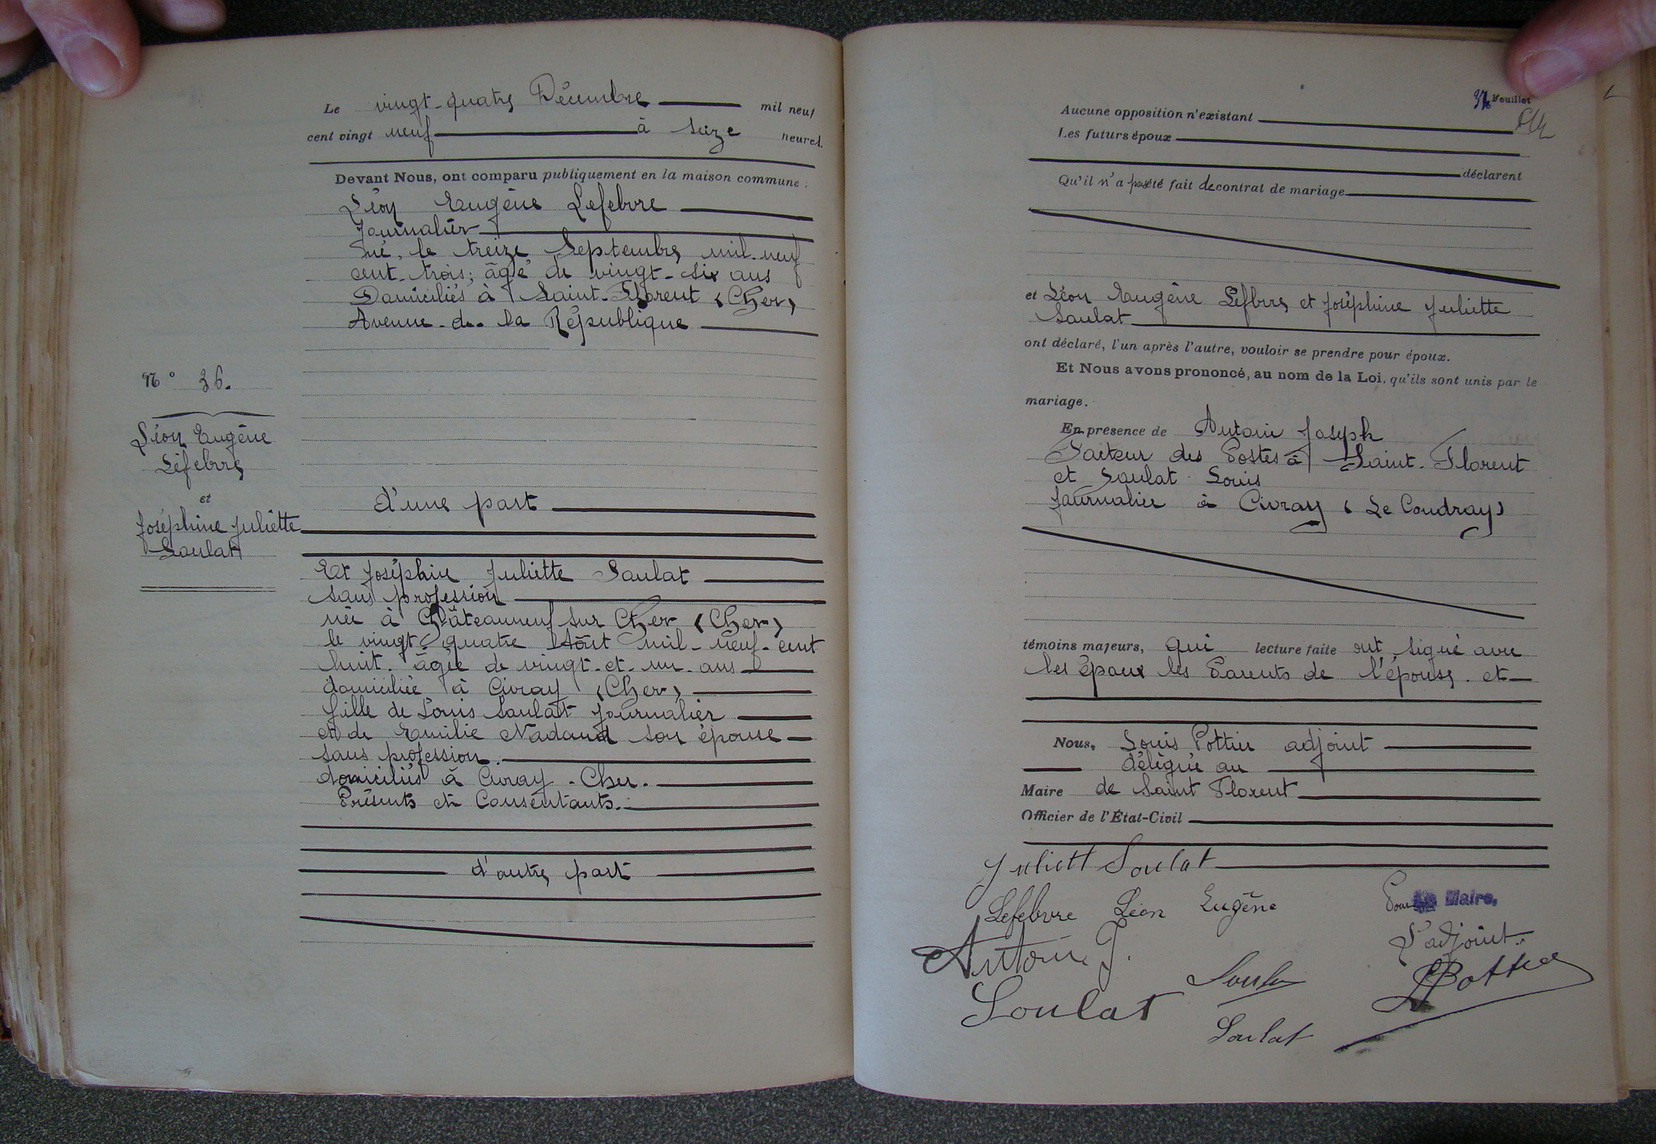 Le vingt-quatre Décembre mil neuf
cent vingt neuf à seize heures.
Devant Nous, ont comparu publiquement en la maison commune :
Léon Eugène Lefebvre
Journalier
né, le treize Septembre mil-neuf
cent-trois; âgé de vingt-six ans
Domiciliés à Saint-Florent (Cher)
Avenue de la République
N° 36.
Léon Eugène
Lefebvre
et
Joséphine Juliette
Soulat
d'une part
Et Joséphine Juliette Soulat
sans profession
née à Châteauneuf sur Cher (Cher)
le vingt-quatre Août mil-neuf-cent
huit. âgée de vingt-et-un-ans
domiciliée à Civray (Cher)
fille de Louis Soulat journalier
et de Emilie Nadaud son épouse
sans profession.
domiciliés à Civray - Cher.
Présents et Consentants.
d'autre part
37 Feuillet
Aucune opposition n'existant
Les futurs époux
déclarent
Qu'il n'a pas été fait de contrat de mariage
et Léon Eugène Lefbvre et Joséphine Juliette
Soulat
ont déclaré, l'un après l'autre, vouloir se prendre pour époux.
Et Nous avons prononcé, au nom de la Loi, qu'ils sont unis par le
mariage.
En présence de Antoin Joseph
Facteur des Postes à Saint-Florent
et Soulat Louis
journalier à Civray (Le Coudray)
témoins majeurs, qui lecture faite ont signé avec
les époux les Parents de l'épouse et
Nous, Louis Pottier adjoint
délégué au
Maire de Saint Florent
Officier de l'État-Civil
Juliett Soulat
Lefebvre Léon Eugène
Pour le Maire,
L'adjoint.
Antoin J.
LPottier
Soulat
Soulat